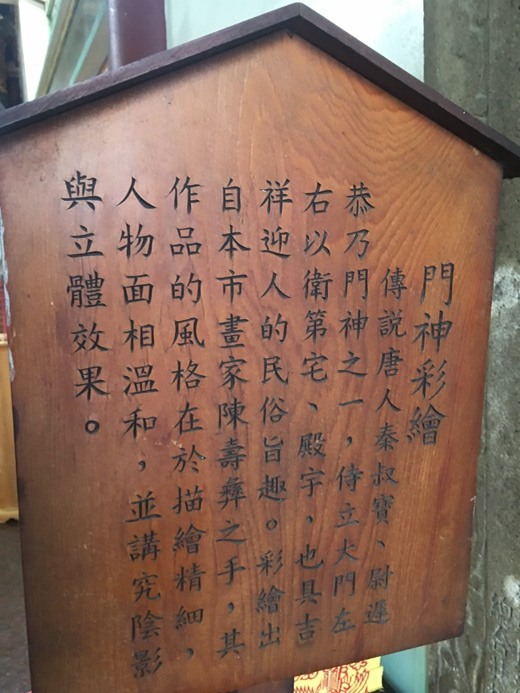 門神彩繪
傳說唐人秦叔寶、尉遲
恭乃門神之一，侍立大門左
右以衛第宅、殿宇，也具吉
祥迎人的民俗旨趣。彩繪出
自本市畫家陳壽彝之手，其
作品的風格在於描繪精細，
人物面相溫和，並講究陰影
與立體效果。